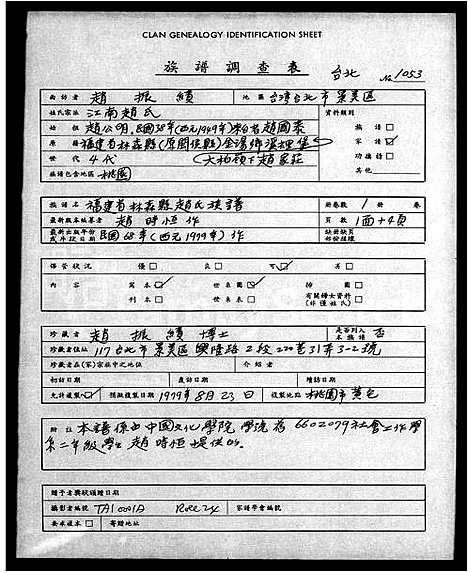 CLAN GENEALOGY IDENTIFICATION SHEET
族譜調查表 台北 No 1053
面訪者 趙振績 地區 台灣台北市景美區
姓氏宗派 江南趙氏 資料類別
始祖 趙公明,民國38年(西元1949年)來台者趙國泰 族譜
原籍 福建省林森縣(原閩侯縣) 家譜
世代 4代 (大柏嶺下趙家莊) 功勳譜
族譜包含地區 桃園 其他
譜名 福建省林森縣趙氏族譜 冊卷數 1冊 卷
最新版本編纂者 趙時恒作 頁數 1面+4頁
最新出版年份或片段日期 民國68年(西元1979年)作 缺冊缺頁
保管狀況 優 良 可 差
內容 寫本 世系圖 插圖
刊本 世系表 有關婦女資料(非僅姓氏)
珍藏者 趙振績博士 是否列入本族譜 否
珍藏者住址 117台北市景美區興隆路2段220巷31弄3-2號
珍藏者在(家)宗族中之地位 介紹者
初訪日期 重訪日期 續訪日期
允許複製 預擬複製日期 1979年8月23日 複製地點 桃園市
附註 本譜係由中國文化學院 學號為6602079社會工作學
系二年級學生趙時恒提供的。
贈予者獎狀頒贈日期
攝影者編號 TA10001A Roll 24 家譜學會編號
要求複本 寄贈地址